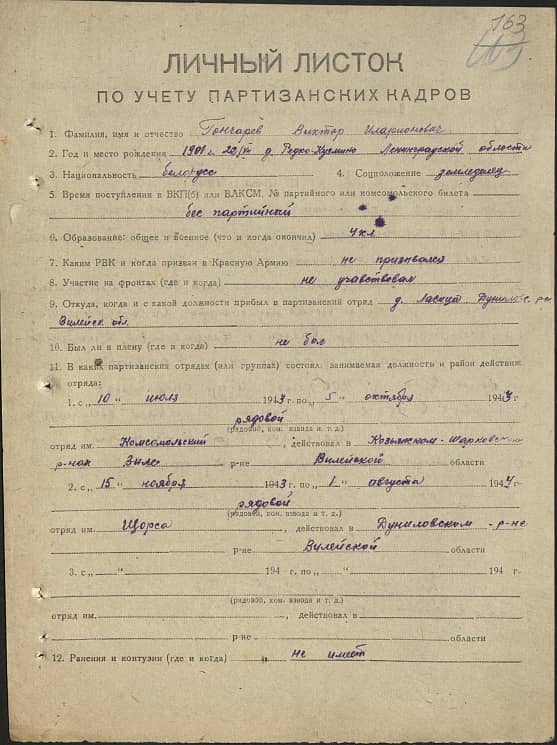 163
ЛИЧНЫЙ ЛИСТОК
ПО УЧЕТУ ПАРТИЗАНСКИХ КАДРОВ
1. Фамилия, имя и отчество Гончарев Виктор Иларионович
2. Год и место рождения 1901 г. д. Редко-Кузмино Ленинградской области
3. Национальность белорусс 4. Соцположение земледелец
5. Время поступления в ВКП(б) или ВЛКСМ, № партийного или комсомольского билета
бес партийный
6. Образование: общее и военное (что и когда окончил) 4 кл
7. Каким РВК и когда призван в Красную Армию не призвался
8. Участие на фронтах (где и когда) не учавствовал
9. Откуда, когда и с какой должности прибыл в партизанский отряд д.
Вилейск. обл.
10. Был ли в плену (где и когда) не был
11. В каких партизанских отрядах (или группах) состоял, занимаемая должность и район действия
отряда:
1. с „10“ июля 1943 г. по „5“ октября 1943 г.
рядовой
(рядовой, ком. взвода и т. д.)
отряд им. Комсомольский, действовал в Козьянском-Шарковским
р-нах р-не Вилейской области
2. с „15“ ноября 1943 г. по „1“ августа 1944 г.
рядовой
(рядовой, ком. взвода и т. д.)
отряд им. Щорса, действовал в Дуниловском р-не
р-не Вилейской области
3. с „ “ 194 г. по „ “ 194 г.
(рядовой, ком. взвода и т. д.)
отряд им. , действовал в
р-не области
12. Ранения и контузии (где и когда) не имеет